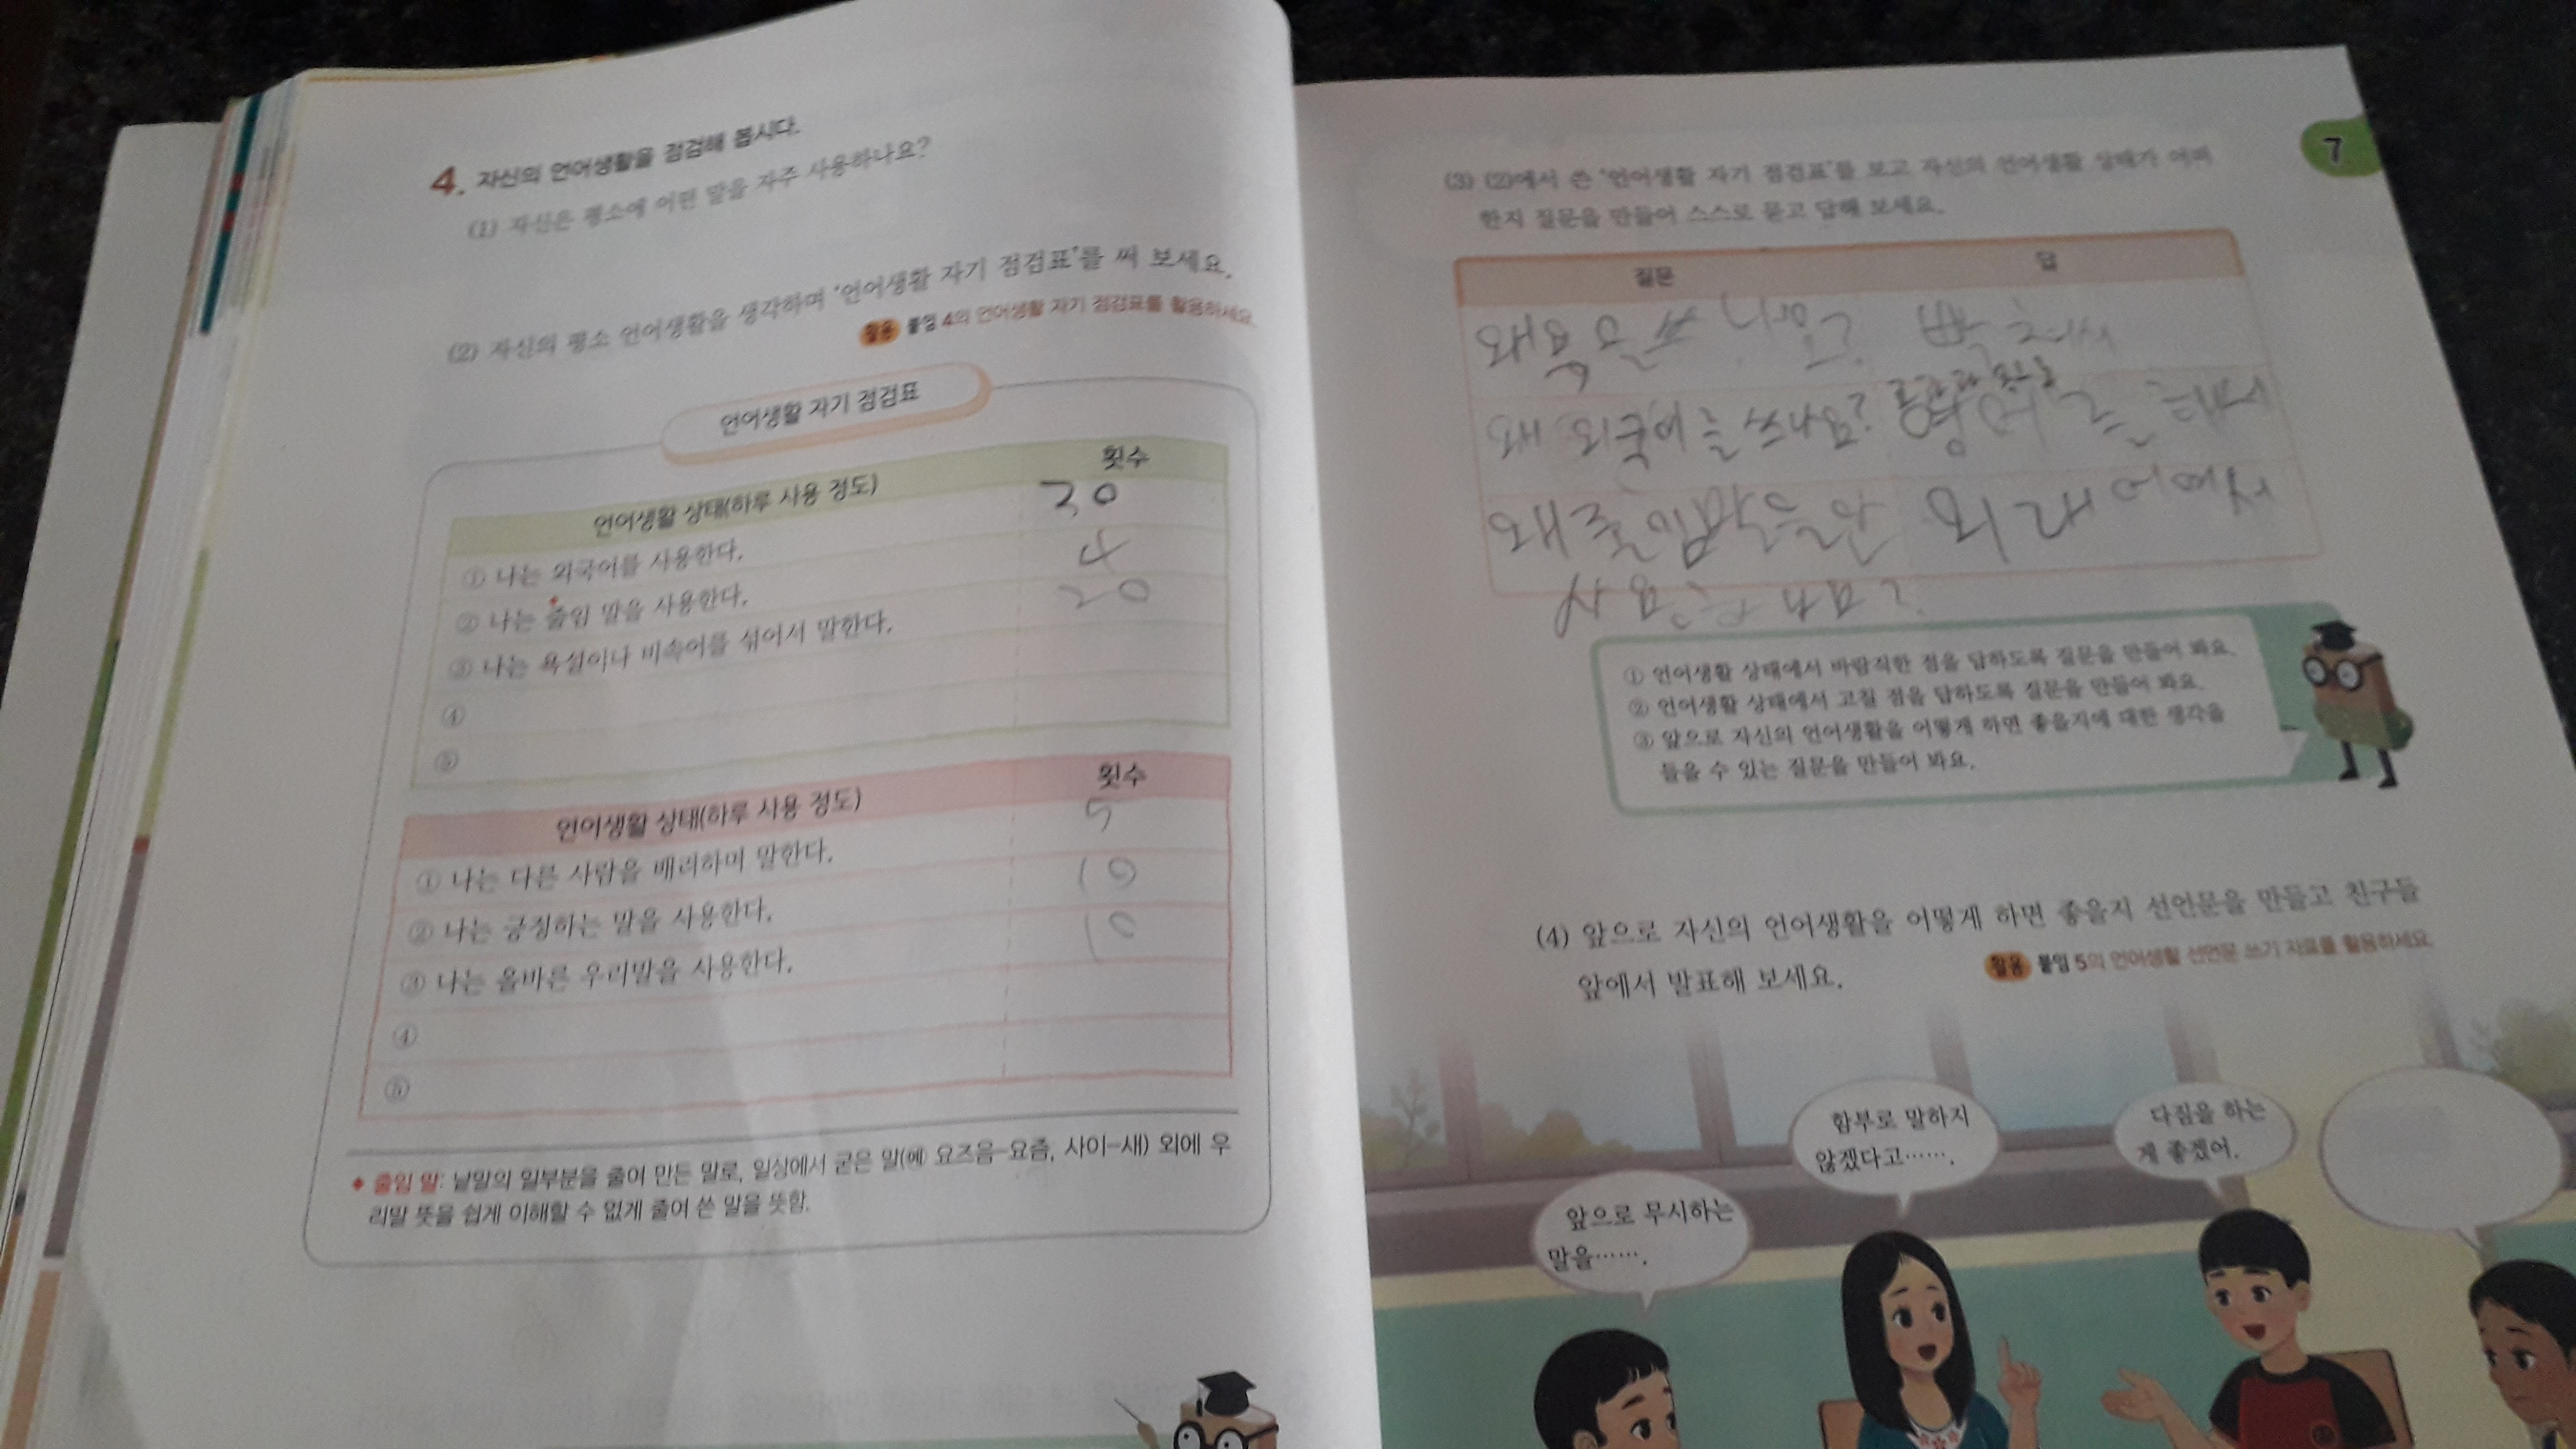 4. 자신의 언어생활을 점검해 봅시다.
(1) 자신은 평소에 어떤 말을 자주 사용하나요?
(2) 자신의 평소 언어생활을 생각하며 '언어생활 자기 점검표'를 써 보세요.
활용 붙임 4의 언어생활 자기 점검표를 활용하세요.
언어생활 자기 점검표
언어생활 상태(하루 사용 정도) 횟수
① 나는 외국어를 사용한다. 30
② 나는 줄임 말을 사용한다. 4
③ 나는 욕설이나 비속어를 섞어서 말한다. 20
④
⑤
언어생활 상태(하루 사용 정도) 횟수
① 나는 다른 사람을 배려하며 말한다. 5
② 나는 긍정하는 말을 사용한다. 10
③ 나는 올바른 우리말을 사용한다. 10
④
⑤
◆ 줄임 말: 낱말의 일부분을 줄여 만든 말로, 일상에서 굳은 말(예 요즈음-요즘, 사이-새) 외에 우
리말 뜻을 쉽게 이해할 수 없게 줄여 쓴 말을 뜻함.
7
(3) (2)에서 쓴 '언어생활 자기 점검표'를 보고 자신의 언어생활 상태가 어떠
한지 질문을 만들어 스스로 묻고 답해 보세요.
질문 답
왜 욕을 쓰 빡쳐서
왜 외국어를 쓰나요? 영어를 해서
왜 줄임말을
사용하나요?
① 언어생활 상태에서 바람직한 점을 답하도록 질문을 만들어 봐요.
② 언어생활 상태에서 고칠 점을 답하도록 질문을 만들어 봐요.
③ 앞으로 자신의 언어생활을 어떻게 하면 좋을지에 대한 생각을
들을 수 있는 질문을 만들어 봐요.
(4) 앞으로 자신의 언어생활을 어떻게 하면 좋을지 선언문을 만들고 친구들
앞에서 발표해 보세요.
활용 붙임 5의 언어생활 선언문 쓰기 자료를 활용하세요.
앞으로 무시하는
말을…….
함부로 말하지
않겠다고…….
다짐을 하는
게 좋겠어.